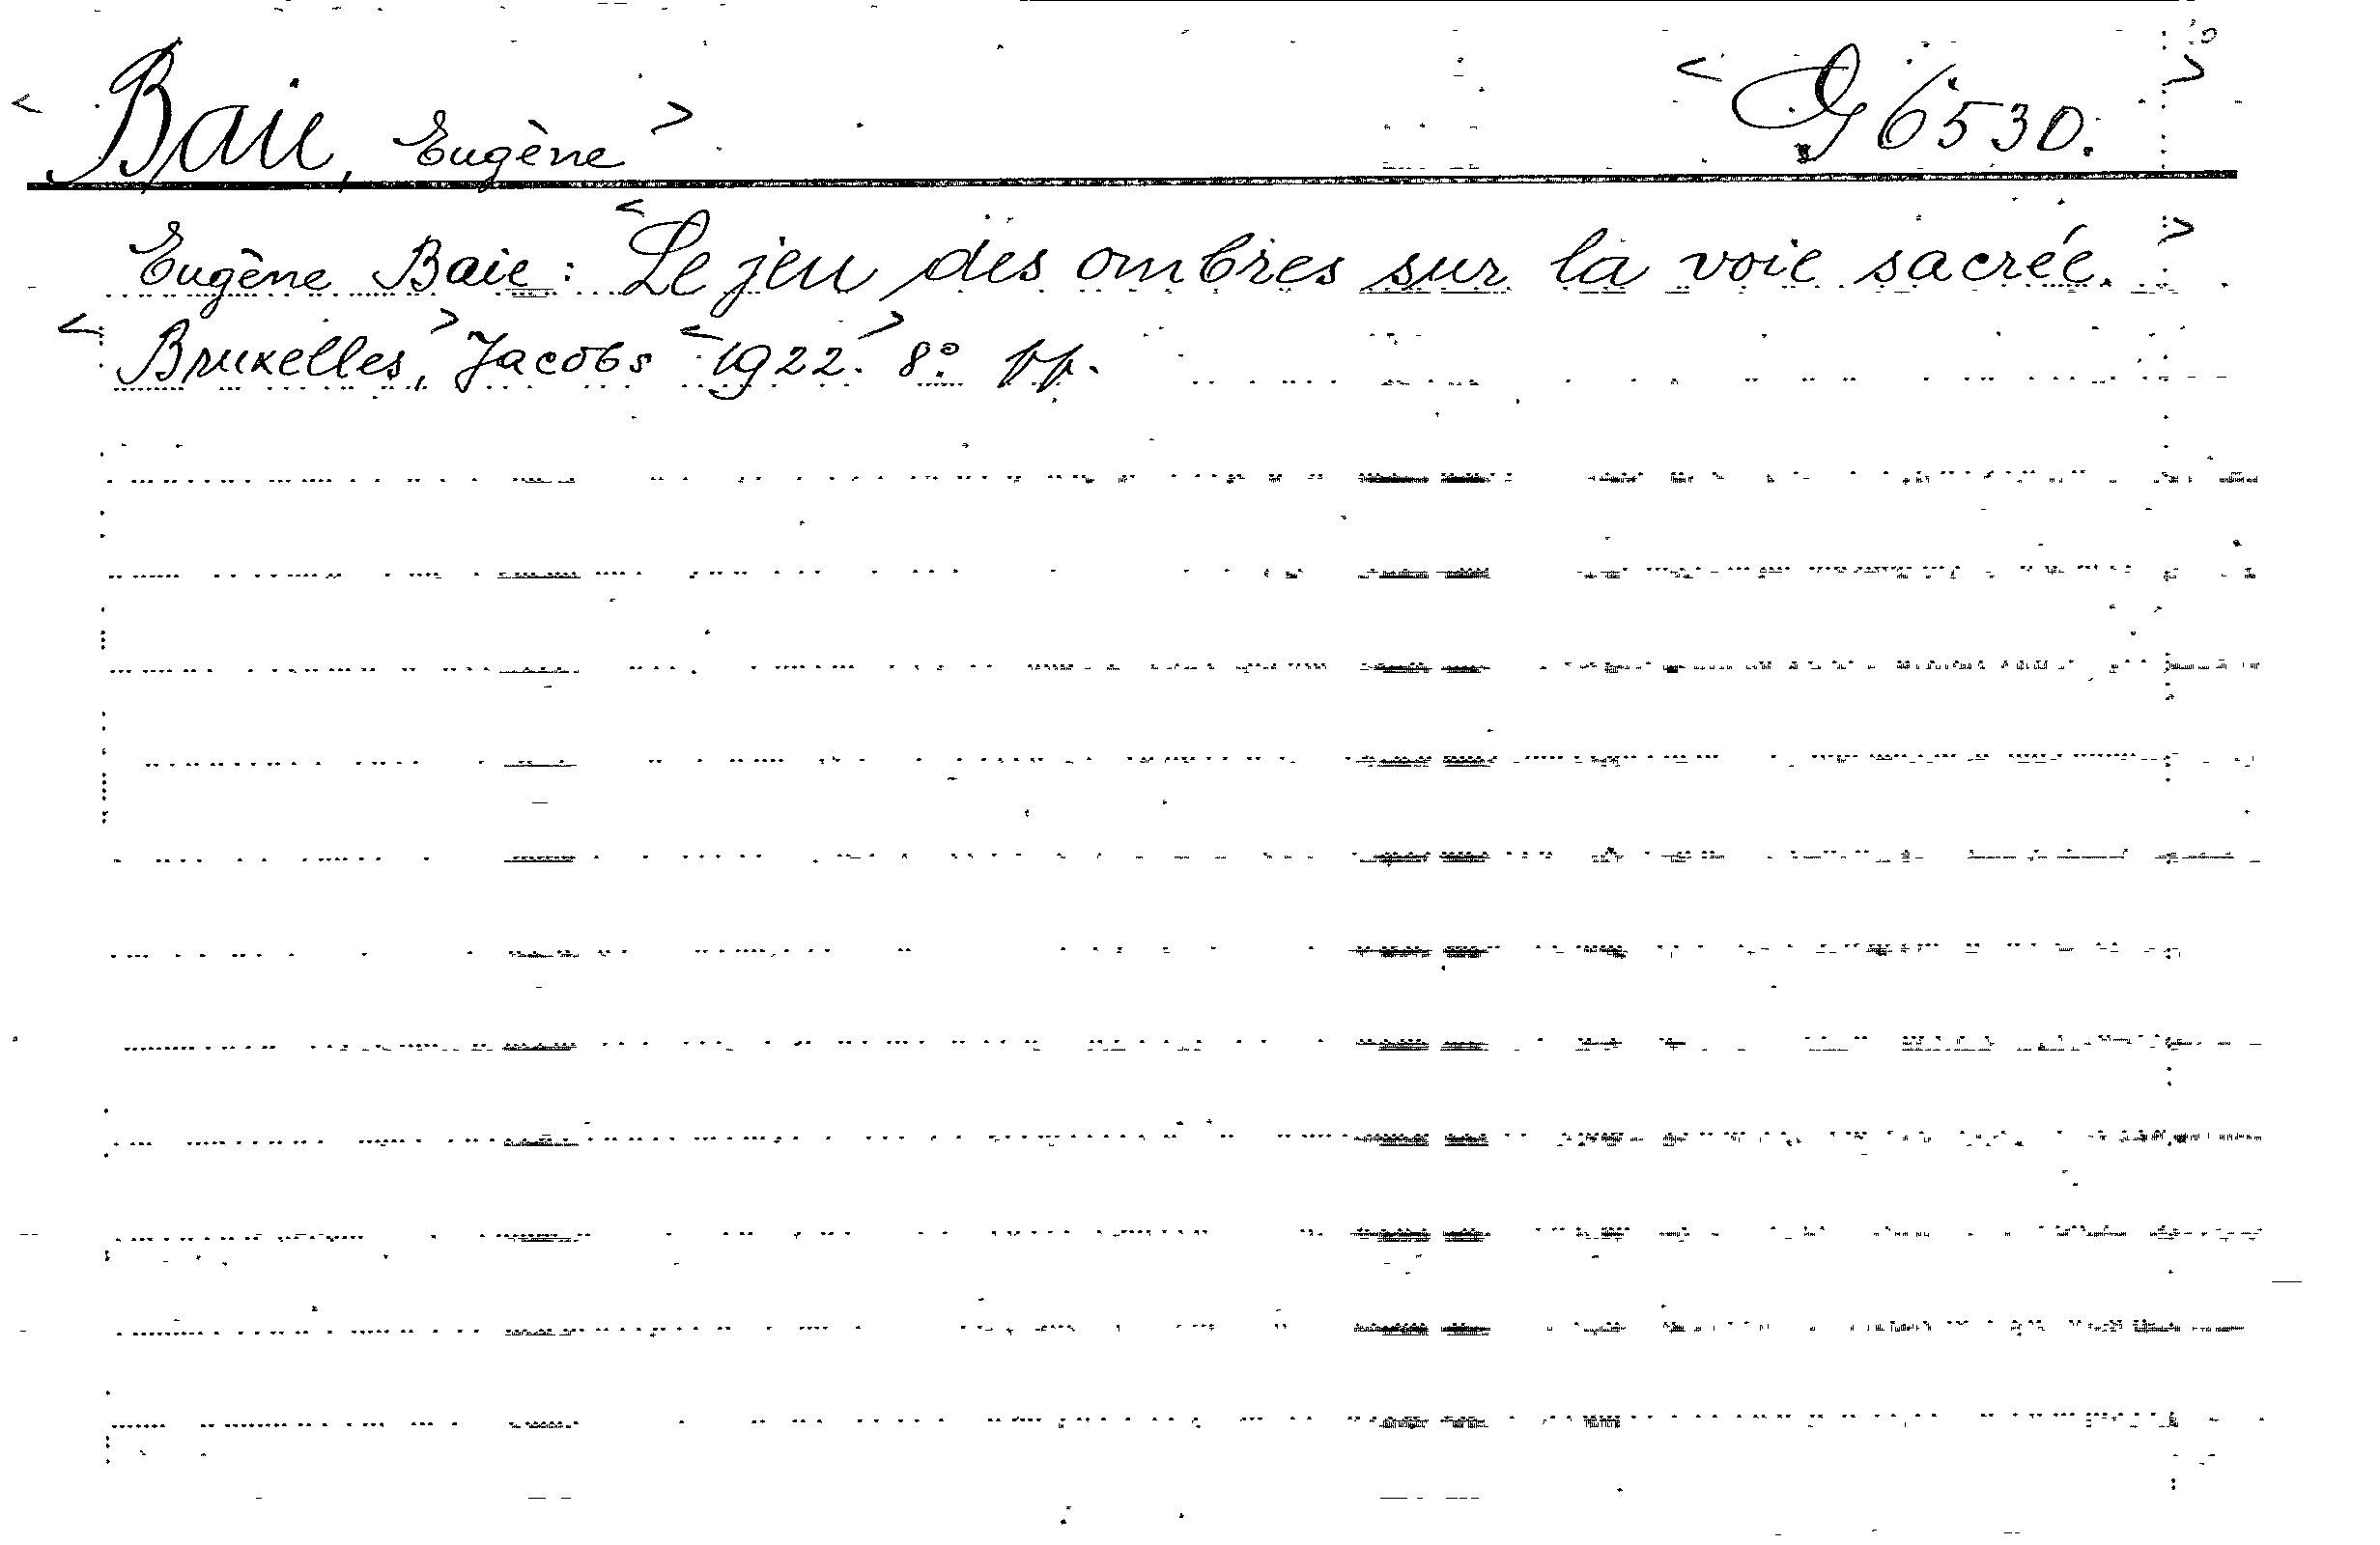 < Baie, Eugène > < G 6530. >
Eugène Baie: < Le jeu des ombres sur la voie sacrée. >
< Bruxelles, > Jacobs < 1922. > 8º. pp.